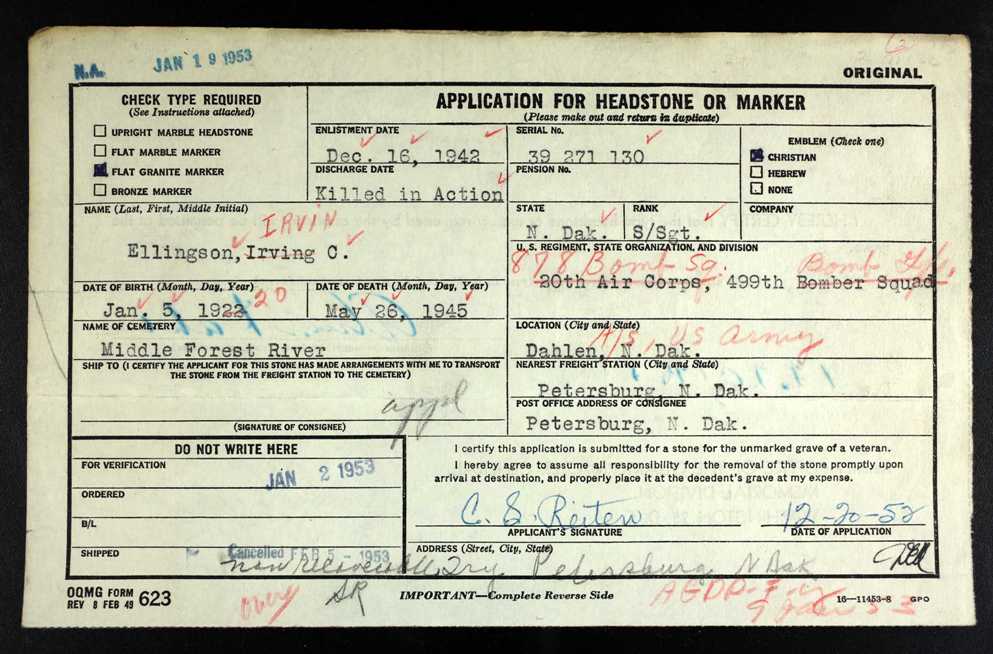 N.A.
JAN 19 1953
ORIGINAL
CHECK TYPE REQUIRED
(See Instructions attached)
UPRIGHT MARBLE HEADSTONE
FLAT MARBLE MARKER
FLAT GRANITE MARKER
BRONZE MARKER
APPLICATION FOR HEADSTONE OR MARKER
(Please make out and return in duplicate)
ENLISTMENT DATE
Dec. 16, 1942
DISCHARGE DATE
Killed in Action
SERIAL No.
39 271 130
PENSION No.
EMBLEM (Check one)
CHRISTIAN
HEBREW
NONE
NAME (Last, First, Middle Initial)
IRVIN
Ellingson, Irving C.
STATE
N. Dak.
RANK
S/Sgt.
COMPANY
U. S. REGIMENT, STATE ORGANIZATION, AND DIVISION
878 Bomb Sq. Bomb Gp.
20th Air Corps, 499th Bomber Squad
A/S, US Army
DATE OF BIRTH (Month, Day, Year)
Jan. 5, 1922 20
DATE OF DEATH (Month, Day, Year)
May 26, 1945
NAME OF CEMETERY
Middle Forest River
LOCATION (City and State)
Dahlen, N. Dak.
SHIP TO (I CERTIFY THE APPLICANT FOR THIS STONE HAS MADE ARRANGEMENTS WITH ME TO TRANSPORT
THE STONE FROM THE FREIGHT STATION TO THE CEMETERY)
appl
(SIGNATURE OF CONSIGNEE)
NEAREST FREIGHT STATION (City and State)
Petersburg, N. Dak.
POST OFFICE ADDRESS OF CONSIGNEE
Petersburg, N. Dak.
DO NOT WRITE HERE
FOR VERIFICATION
JAN 2 1953
ORDERED
B/L
SHIPPED
Cancelled FEB 5 - 1953
I certify this application is submitted for a stone for the unmarked grave of a veteran.
I hereby agree to assume all responsibility for the removal of the stone promptly upon
arrival at destination, and properly place it at the decedent's grave at my expense.
C. S. Reiten
APPLICANT'S SIGNATURE
12-20-52
DATE OF APPLICATION
ADDRESS (Street, City, State)
Petersburg N Dak
OQMG FORM
REV 8 FEB 49 623
IMPORTANT—Complete Reverse Side
16—11453-8 GPO